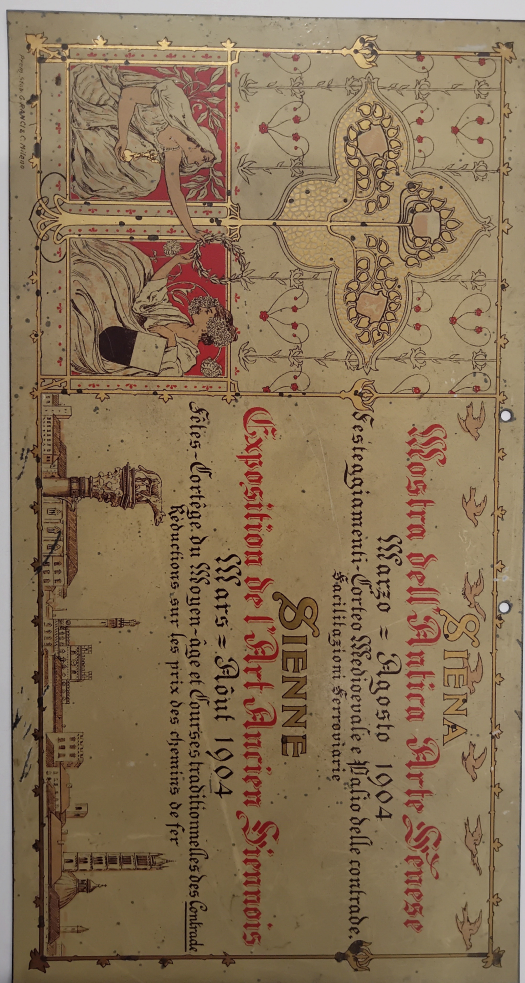 SIENA
Mostra dell'Antica Arte Senese
Marzo = Agosto 1904
Festeggiamenti-Corteo Medioevale e Palio delle contrade.
Facilitazioni Ferroviarie
SIENNE
Exposition de l'Art Ancien Siennois
Mars = Aôut 1904
Fêtes-Cortège du Moyen-âge et Courses traditionnelles des Contrade
Réductions sur les prix des chemins de fer